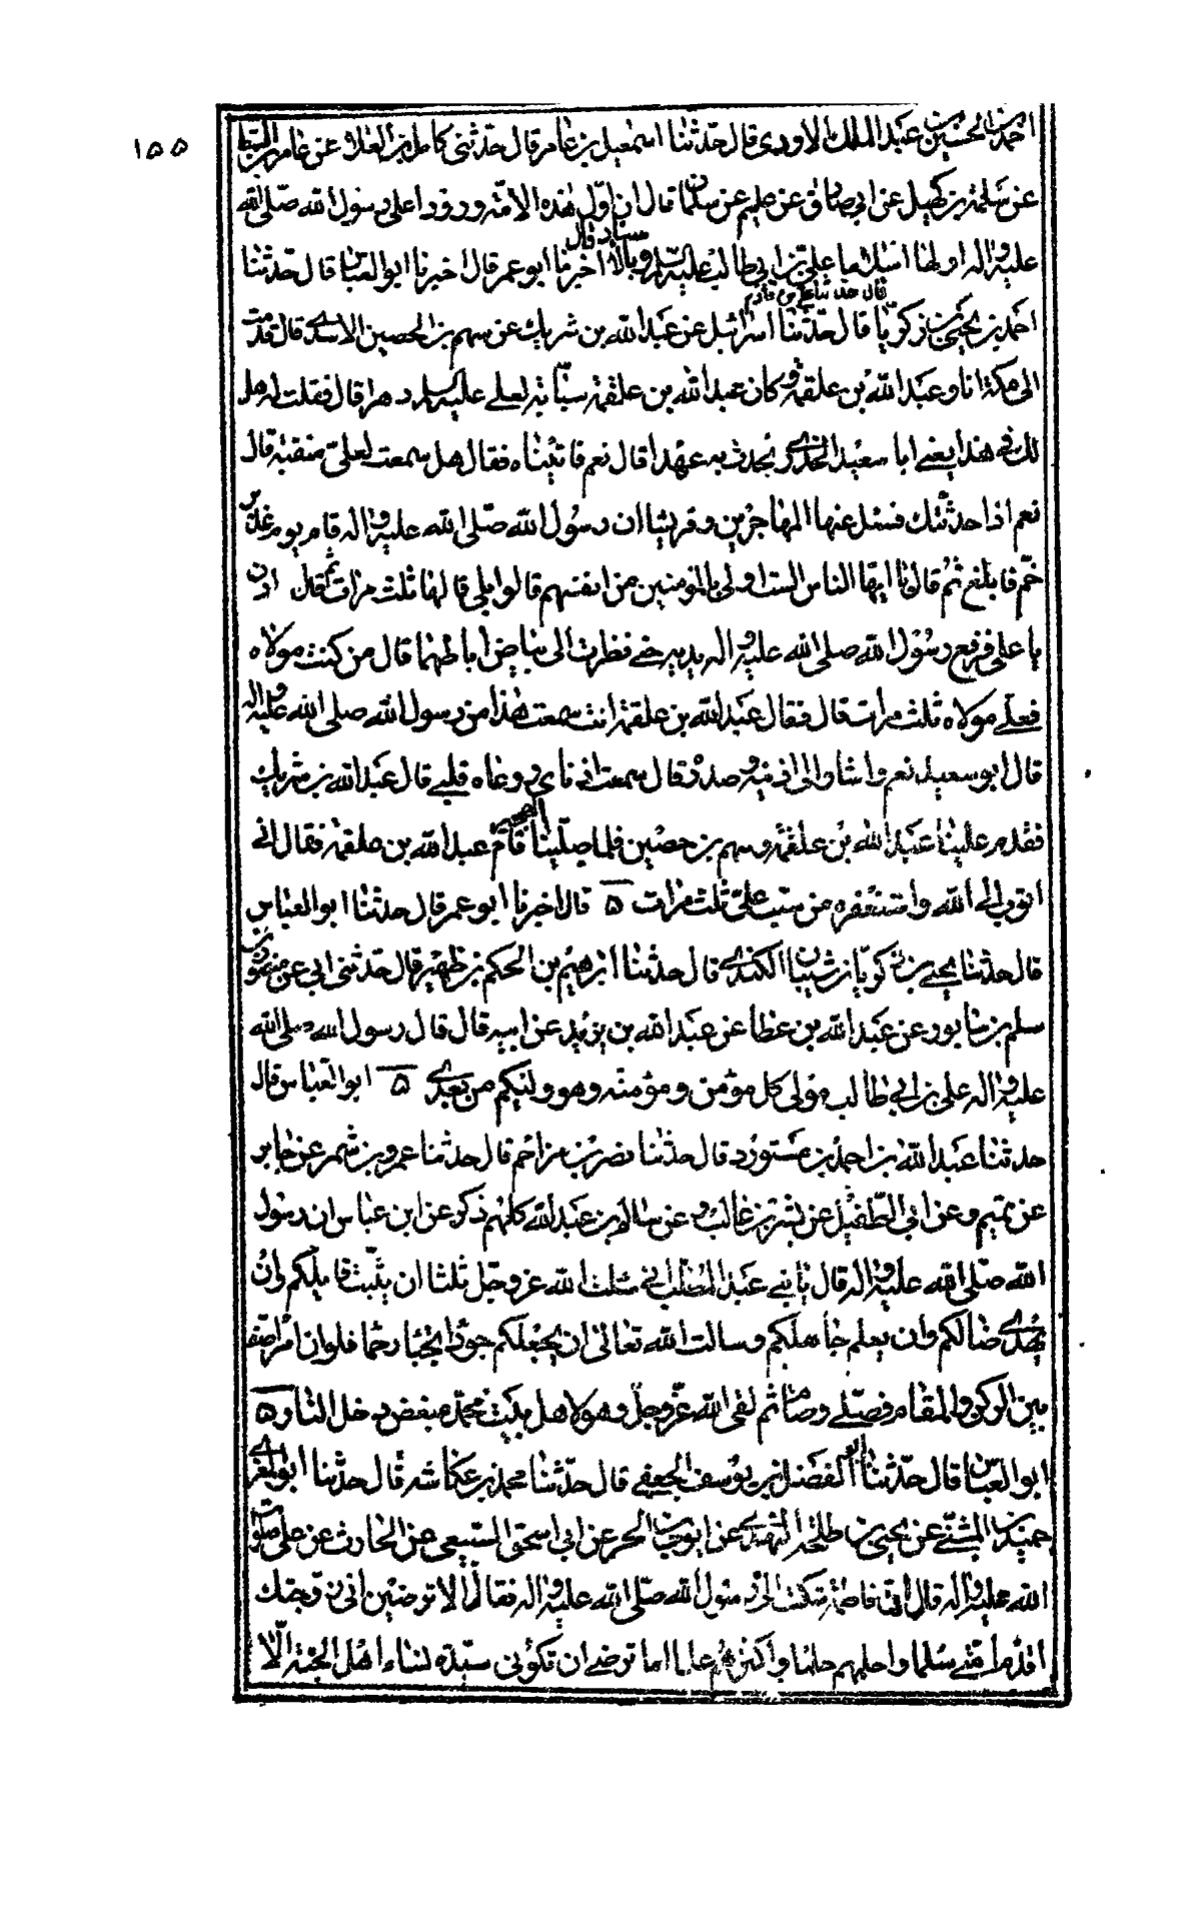 ١٥٥
احمد بن الحسين بن عبد الملك الاودى قال حدثنا اسمعيل بن عامر قال حدثنى كامل بن العلا عن عامر بن السبط
عن سلمة بن كهيل عن ابى صادق عن عليم عن سلمان قال ان اول هذه الامة ورودا على رسول الله صلى الله
عليه واله اولها اسلاما على بن ابى طالب عليه السلم وبالاسناد قال اخبرنا ابو عمر قال اخبرنا ابو العباس قال حدثنا
قال حدثنا على بن قادم
احمد بن يحيى بن زكريا قال حدثنا اسرائيل عن عبد الله بن شريك عن سهم بن الحصين الاسدى قال قدمت
الى مكة انا وعبد الله بن علقمة وكان عبد الله بن علقمة سبابة لعلى عليه السلم دهرا قال فقلت له هل
لك فى هذا يعنى ابا سعيد الخدرى نحدث به عهدا قال نعم فاتيناه فقال هل سمعت لعلى منقبة قال
نعم اذا حدثتك فسئل عنها المهاجرين وقريشا ان رسول الله صلى الله عليه واله قام يوم غدير
خم فابلغ ثم قال يا ايها الناس الست اولى بالمؤمنين من انفسهم قالوا بلى قالها ثلث مرات ثم قال ادن
يا على فرفع رسول الله صلى الله عليه واله يديه حتى نظرت الى بياض اباطهما قال من كنت مولاه
فعلى مولاه ثلث مرات قال فقال عبد الله بن علقمة انت سمعت هذا من رسول الله صلى الله عليه واله
قال ابو سعيد نعم واشار الى اذنيه وصدره قال سمعته اذناى ووعاه قلبى قال عبد الله بن شريك
فقدم علينا عبد الله بن علقمة وسهم بن حصين فلما صلينا الهجير قام عبد الله بن علقمة فقال انى
اتوب الى الله واستغفره من سب على ثلث مرات ٥ قال اخبرنا ابو عمر قال حدثنا ابو العباس
قال حدثنا يحيى بن زكريا بن شيبان الكندى قال حدثنا ابرهيم بن الحكم بن ظهير قال حدثنى ابى عن منصور بن
سلم بن سابور عن عبد الله بن عطا عن عبد الله بن بريد عن ابيه قال قال رسول الله صلى الله
عليه واله على بن ابى طالب مولى كل مؤمن ومؤمنة وهو وليكم من بعدى ٥ ابو العباس قال
حدثنا عبد الله بن احمد بن مستورد قال حدثنا نصر بن مزاحم قال حدثنا عمرو بن شمر عن جابر
عن تميم وعن ابى الطفيل عن بشر بن غالب وعن سالم بن عبد الله كلهم ذكر عن ابن عباس ان رسول
الله صلى الله عليه واله قال يا بنى عبد المطلب انى سئلت الله عز وجل ثلثا ان يثبت قايلكم وان
يهدى ضالكم وان يعلم جاهلكم وسالت الله تعالى ان يجعلكم جودا نجبا رحما فلو ان امرا صف
بين الركن والمقام فصلى وصام ثم لقى الله عز وجل وهو لاهل بيت محمد مبغض دخل النار ٥
ابو العباس قال حدثنا ابو الفضل بن يوسف الجعفى قال حدثنا محمد بن عكاشه قال حدثنا ابو المغرى
حميد بن المثنى عن يحيى بن طلحة النهدى عن ايوب بن الحر عن ابى اسحق السبيعى عن الحارث عن على صلوات
الله عليه واله قال ان فاطمة شكت الى رسول الله صلى الله عليه واله فقال الا ترضين انى زوجتك
اقدم امتى سلما واحلمهم حلما واكثرهم علما اما ترضى ان تكونى سيدة لنساء اهل الجنة الا